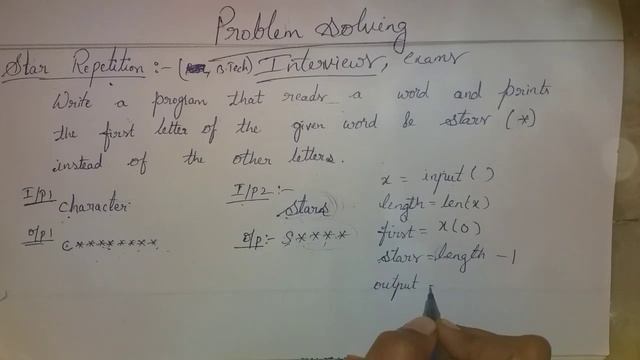 Problem Solving
Star Repetition :- (B.Tech) Interviews, exams
Write a program that reads a word and prints
the first letter of the given word & stars (*)
instead of the other letters.
I/p1
character
o/p1
c********
I/p2 :-
stars
o/p :- S****
x = input()
length = len(x)
first = x(0)
stars = length - 1
output =